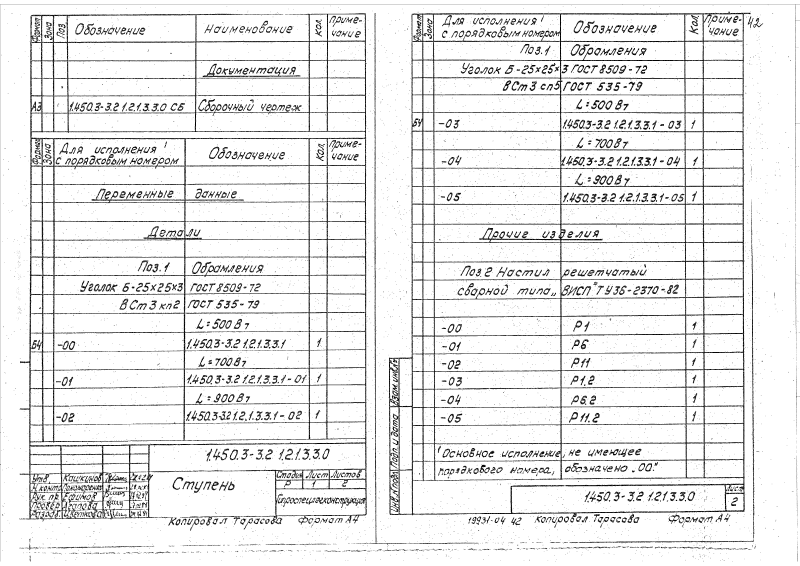 Формат Зона Поз. Обозначение Наименование Кол. Приме-чание
Документация
А3 1.450.3-3.2 1.2.1.3.3.0 СБ Сборочный чертеж
Формат Зона Для исполнения¹ с порядковым номером Обозначение Кол. Приме-чание
Переменные данные
Детали
Поз.1 Обрамления
Уголок Б-25х25х3 ГОСТ 8509-72
ВСт3кп2 ГОСТ 535-79
L=500 Вт
Б4 -00 1.450.3-3.2 1.2.1.3.3.1 1
L=700 Вт
-01 1.450.3-3.2 1.2.1.3.3.1-01 1
L=900 Вт
-02 1.450.3-3.2 1.2.1.3.3.1-02 1
1.450.3-3.2 1.2.1.3.3.0
Утв.
Н.контр.
Рук. пр. Ефимов
Провер.
Разраб. Цветкова
Ступень
Стадия Лист Листов
Р 1 2
Копировал Тарасова Формат А4
42
Формат Зона Для исполнения¹ с порядковым номером Обозначение Кол. Приме-чание
Поз.1 Обрамления
Уголок Б-25х25х3 ГОСТ 8509-72
ВСт3сп5 ГОСТ 535-79
L=500 Вт
Б4 -03 1.450.3-3.2 1.2.1.3.3.1-03 1
L=700 Вт
-04 1.450.3-3.2 1.2.1.3.3.1-04 1
L=900 Вт
-05 1.450.3-3.2 1.2.1.3.3.1-05 1
Прочие изделия
Поз.2 Настил решетчатый
сварной типа „ВИСП" ТУ36-2370-82
-00 Р1 1
-01 Р6 1
-02 Р11 1
-03 Р1,2 1
-04 Р6,2 1
-05 Р11,2 1
¹Основное исполнение, не имеющее
порядкового номера, обозначено „00"
Взам.инв.№
Подп. и дата
Инв.№ подл.
1.450.3-3.2 1.2.1.3.3.0
Лист
2
19931-04 42 Копировал Тарасова Формат А4